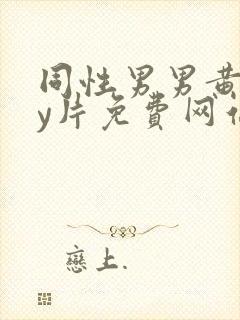 同性男男黄
y片免費网
戀上.